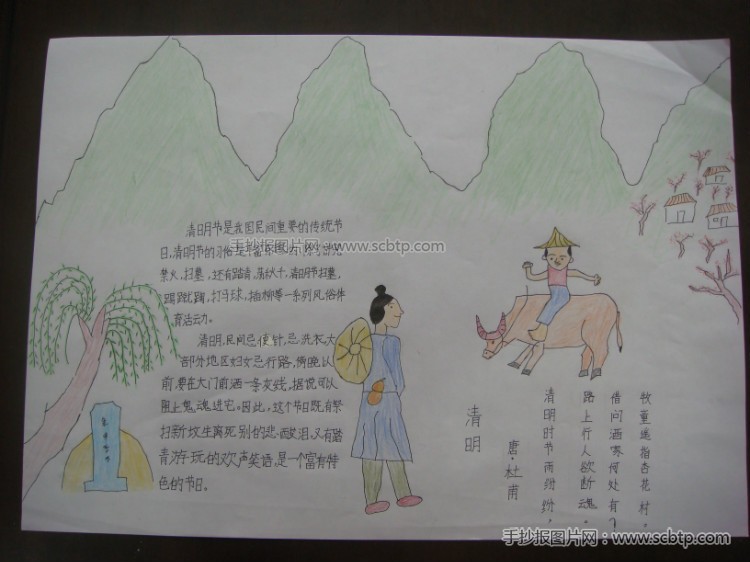 清明节是我国民间重要的传统节
日,清明节的习俗是丰富有趣的,除了讲究
禁火,扫墓,还有踏青、荡秋千,清明节扫墓,
踢蹴鞠,打马球,插柳等一系列风俗体
育活动。
清明,民间忌使针,忌洗衣,大
部分地区妇女忌行路,傍晚以
前,要在大门前洒一条灰线,据说可以
阻止鬼魂进宅。因此,这个节日既有祭
扫新坟生离死别的悲酸泪,又有踏
青游玩的欢声笑语,是一个富有特
色的节日。
清明
唐·杜甫
清明时节雨纷纷,
路上行人欲断魂。
借问酒家何处有?
牧童遥指杏花村。
手抄报图片网 www.scbtp.com
手抄报图片网:www.scbtp.com